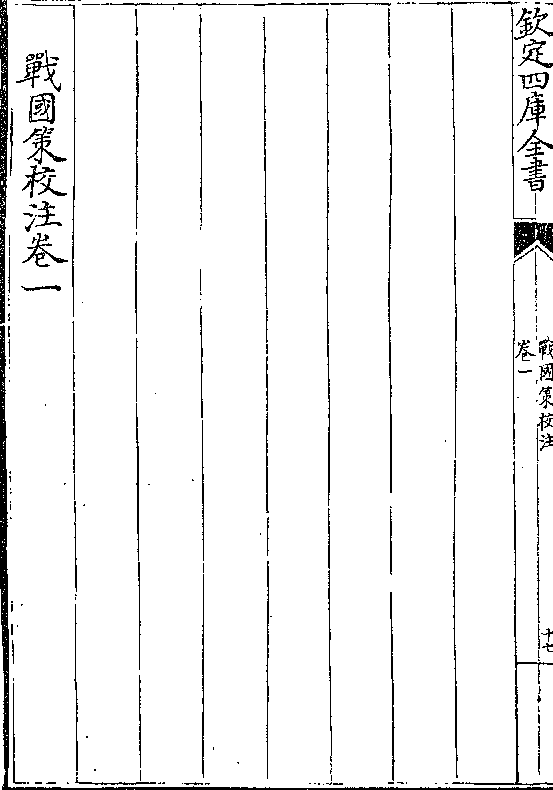 欽定四庫全書
戰國策校注
卷一
十七
戰國策校注卷一